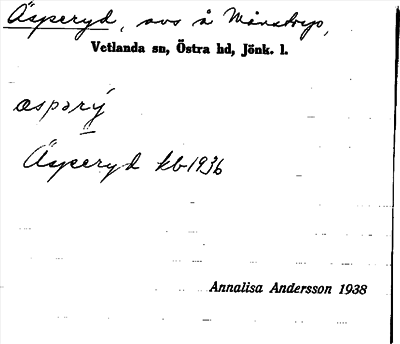 Äsperyd, avs å Månstorp,
Vetlanda sn, Östra hd, Jönk. l.
æspərý
Äsperyd kb 1936
Annalisa Andersson 1938